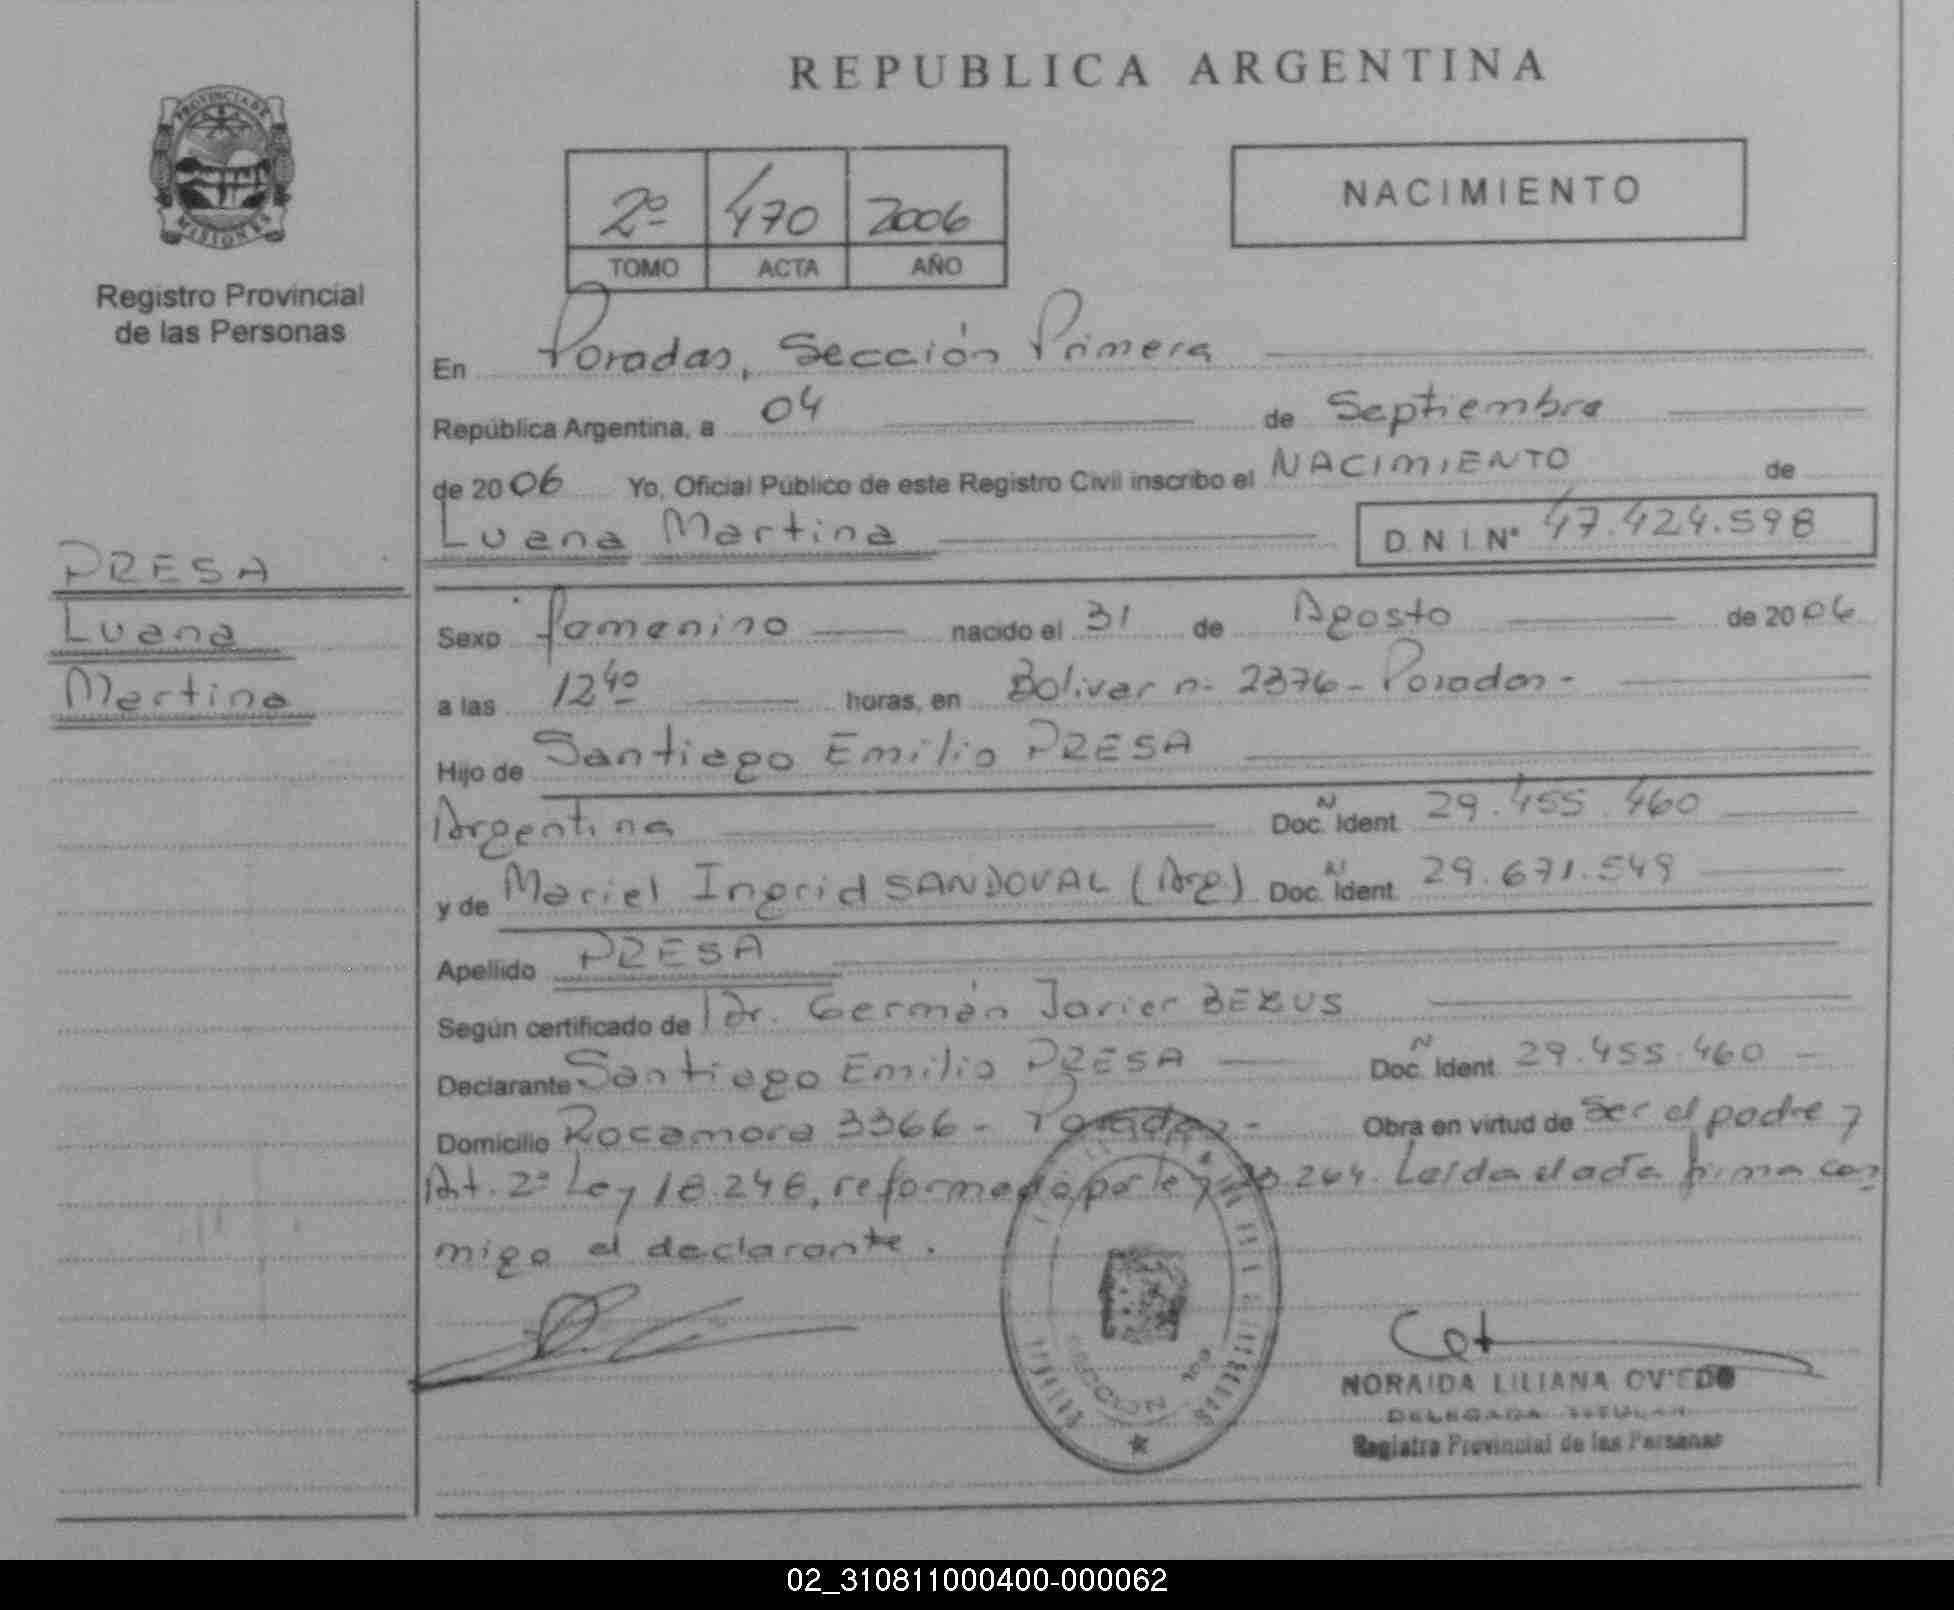 PROVINCIA DE
MISIONES
Registro Provincial
de las Personas
PRESA
Luana
Martina
REPUBLICA ARGENTINA
2º 470 2006
TOMO ACTA AÑO
NACIMIENTO
En Posadas, Sección Primera
República Argentina, a 04 de Septiembre
de 2006 Yo, Oficial Público de este Registro Civil inscribo el NACIMIENTO de
Luana Martina D.N.I. Nº 47.424.598
Sexo femenino nacido el 31 de Agosto de 2006
a las 12 40 horas, en Bolivar n- 2376 - Posadas -
Hijo de Santiago Emilio PRESA
Argentina Doc. N Ident. 29.455.460
y de Mariel Ingrid SANDOVAL (Arg.) Doc. N Ident. 29.671.549
Apellido PRESA
Según certificado de Dr. Germán Javier BEZUS
Declarante Santiago Emilio PRESA Doc. N Ident. 29.455.460
Domicilio Rocamora 3366 - Posadas - Obra en virtud de ser el padre y
Art. 2º Ley 18.248, reformado por ley 23.264. Leída el acta firma con
migo el declarante.
Cot
NORAIDA LILIANA OVIEDO
DELEGADA TITULAR
Registro Provincial de las Personas
02_310811000400-000062